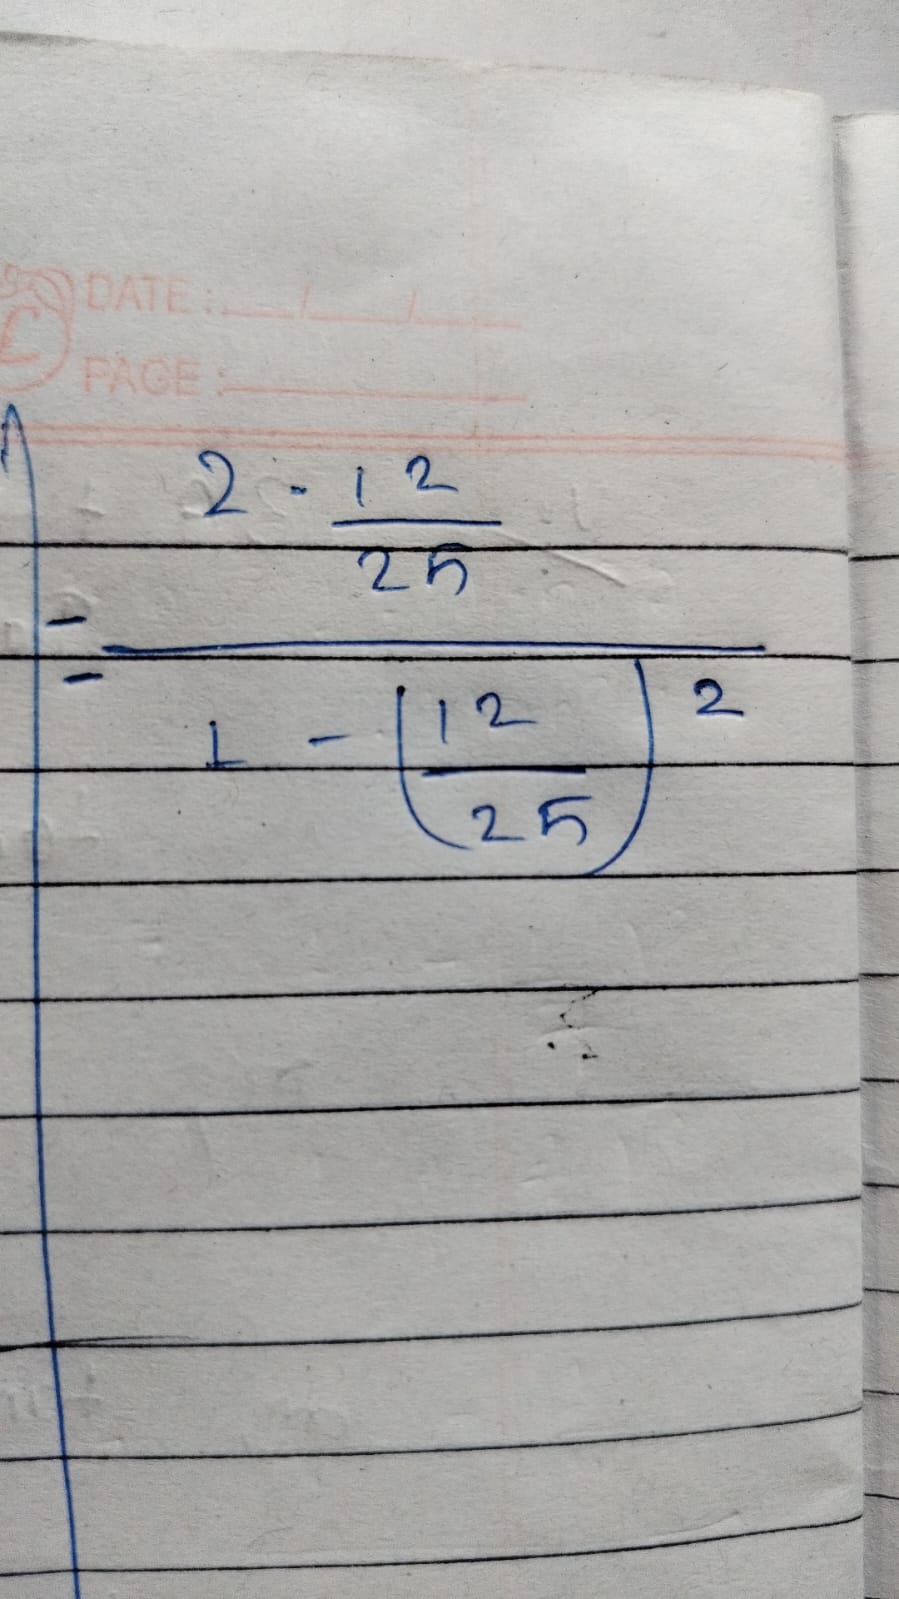 DATE : / /
PAGE :
2 · 12
25
=
1 - (12
25) 2